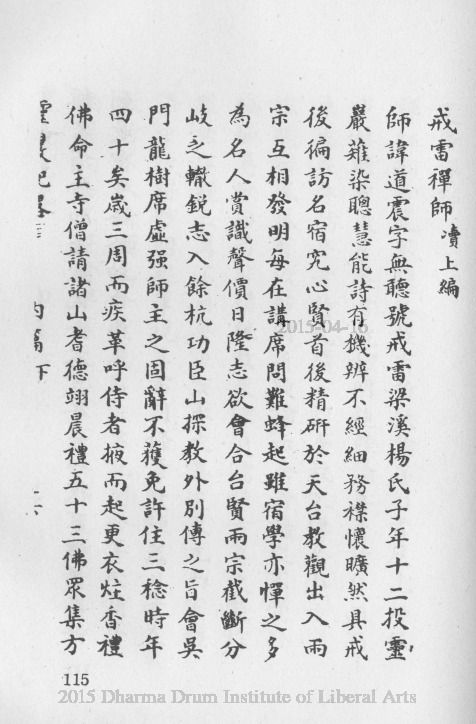 戒雷禪師 瀆上編
師諱道震字無聽號戒雷梁溪楊氏子年十二投靈
嚴薙染聰慧能詩有機辨不經細務襟懷曠然具戒
後徧訪名宿究心賢首後精研於天台教觀出入兩
宗互相發明每在講席問難蜂起雖宿學亦憚之多
為名人賞識聲價日隆志欲會合台賢兩宗截斷分
岐之轍銳志入餘杭功臣山探教外別傳之旨會吳
門龍樹席虛强師主之固辭不獲免許住三稔時年
四十矣歲三周而疾革呼侍者掖而起更衣炷香禮
佛命主寺僧請諸山耆德翊晨禮五十三佛眾集方
下
115
2015-04-16
2015 Dharma Drum Institute of Liberal Arts